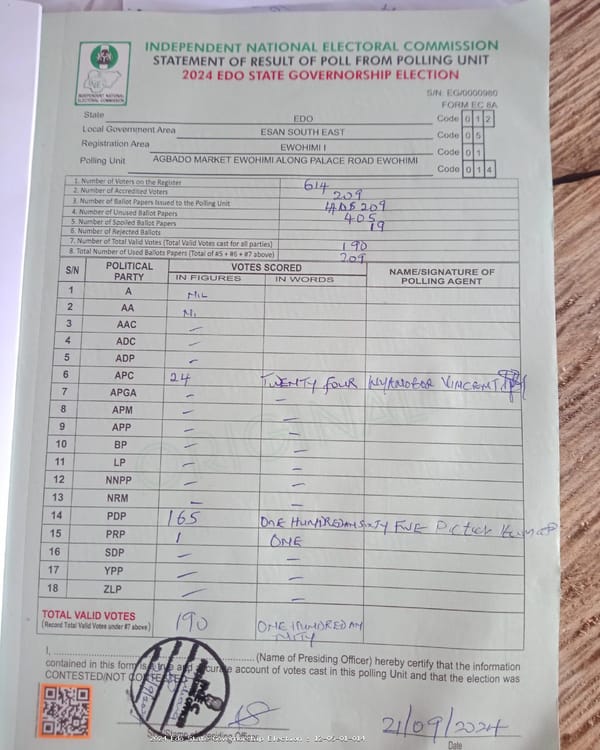 INDEPENDENT NATIONAL ELECTORAL COMMISSION
STATEMENT OF RESULT OF POLL FROM POLLING UNIT
2024 EDO STATE GOVERNORSHIP ELECTION
INDEPENDENT NATIONAL ELECTORAL COMMISSION
S/N: EG/0000980
FORM EC 8A
State EDO Code 0 1 2
Local Government Area ESAN SOUTH EAST Code 0 5
Registration Area EWOHIMI I Code 0 1
Polling Unit AGBADO MARKET EWOHIMI ALONG PALACE ROAD EWOHIMI Code 0 1 4
1. Number of Voters on the Register 614
2. Number of Accredited Voters 209
3. Number of Ballot Papers Issued to the Polling Unit 209
4. Number of Unused Ballot Papers 405
5. Number of Spoiled Ballot Papers
6. Number of Rejected Ballots 19
7. Number of Total Valid Votes (Total Valid Votes cast for all parties) 190
8. Total Number of Used Ballots Papers (Total of #5 + #6 + #7 above) 209
S/N POLITICAL PARTY VOTES SCORED NAME/SIGNATURE OF POLLING AGENT
IN FIGURES IN WORDS
1 A NIL
2 AA
3 AAC –
4 ADC –
5 ADP –
6 APC 24 TWENTY FOUR VINCENT
7 APGA – –
8 APM – –
9 APP – –
10 BP – –
11 LP – –
12 NNPP – –
13 NRM – –
14 PDP 165 ONE HUNDRED AN SIXTY FIVE
15 PRP 1 ONE
16 SDP – –
17 YPP – –
18 ZLP – –
TOTAL VALID VOTES 190 ONE HUNDRED AN
(Record Total Valid Votes under #7 above)
ORIGINAL
I, (Name of Presiding Officer) hereby certify that the information
contained in this form is a true and accurate account of votes cast in this polling Unit and that the election was
CONTESTED/NOT CONTESTED
21/09/2024
Date
2024 Edo State Governorship Election - 12-05-01-014